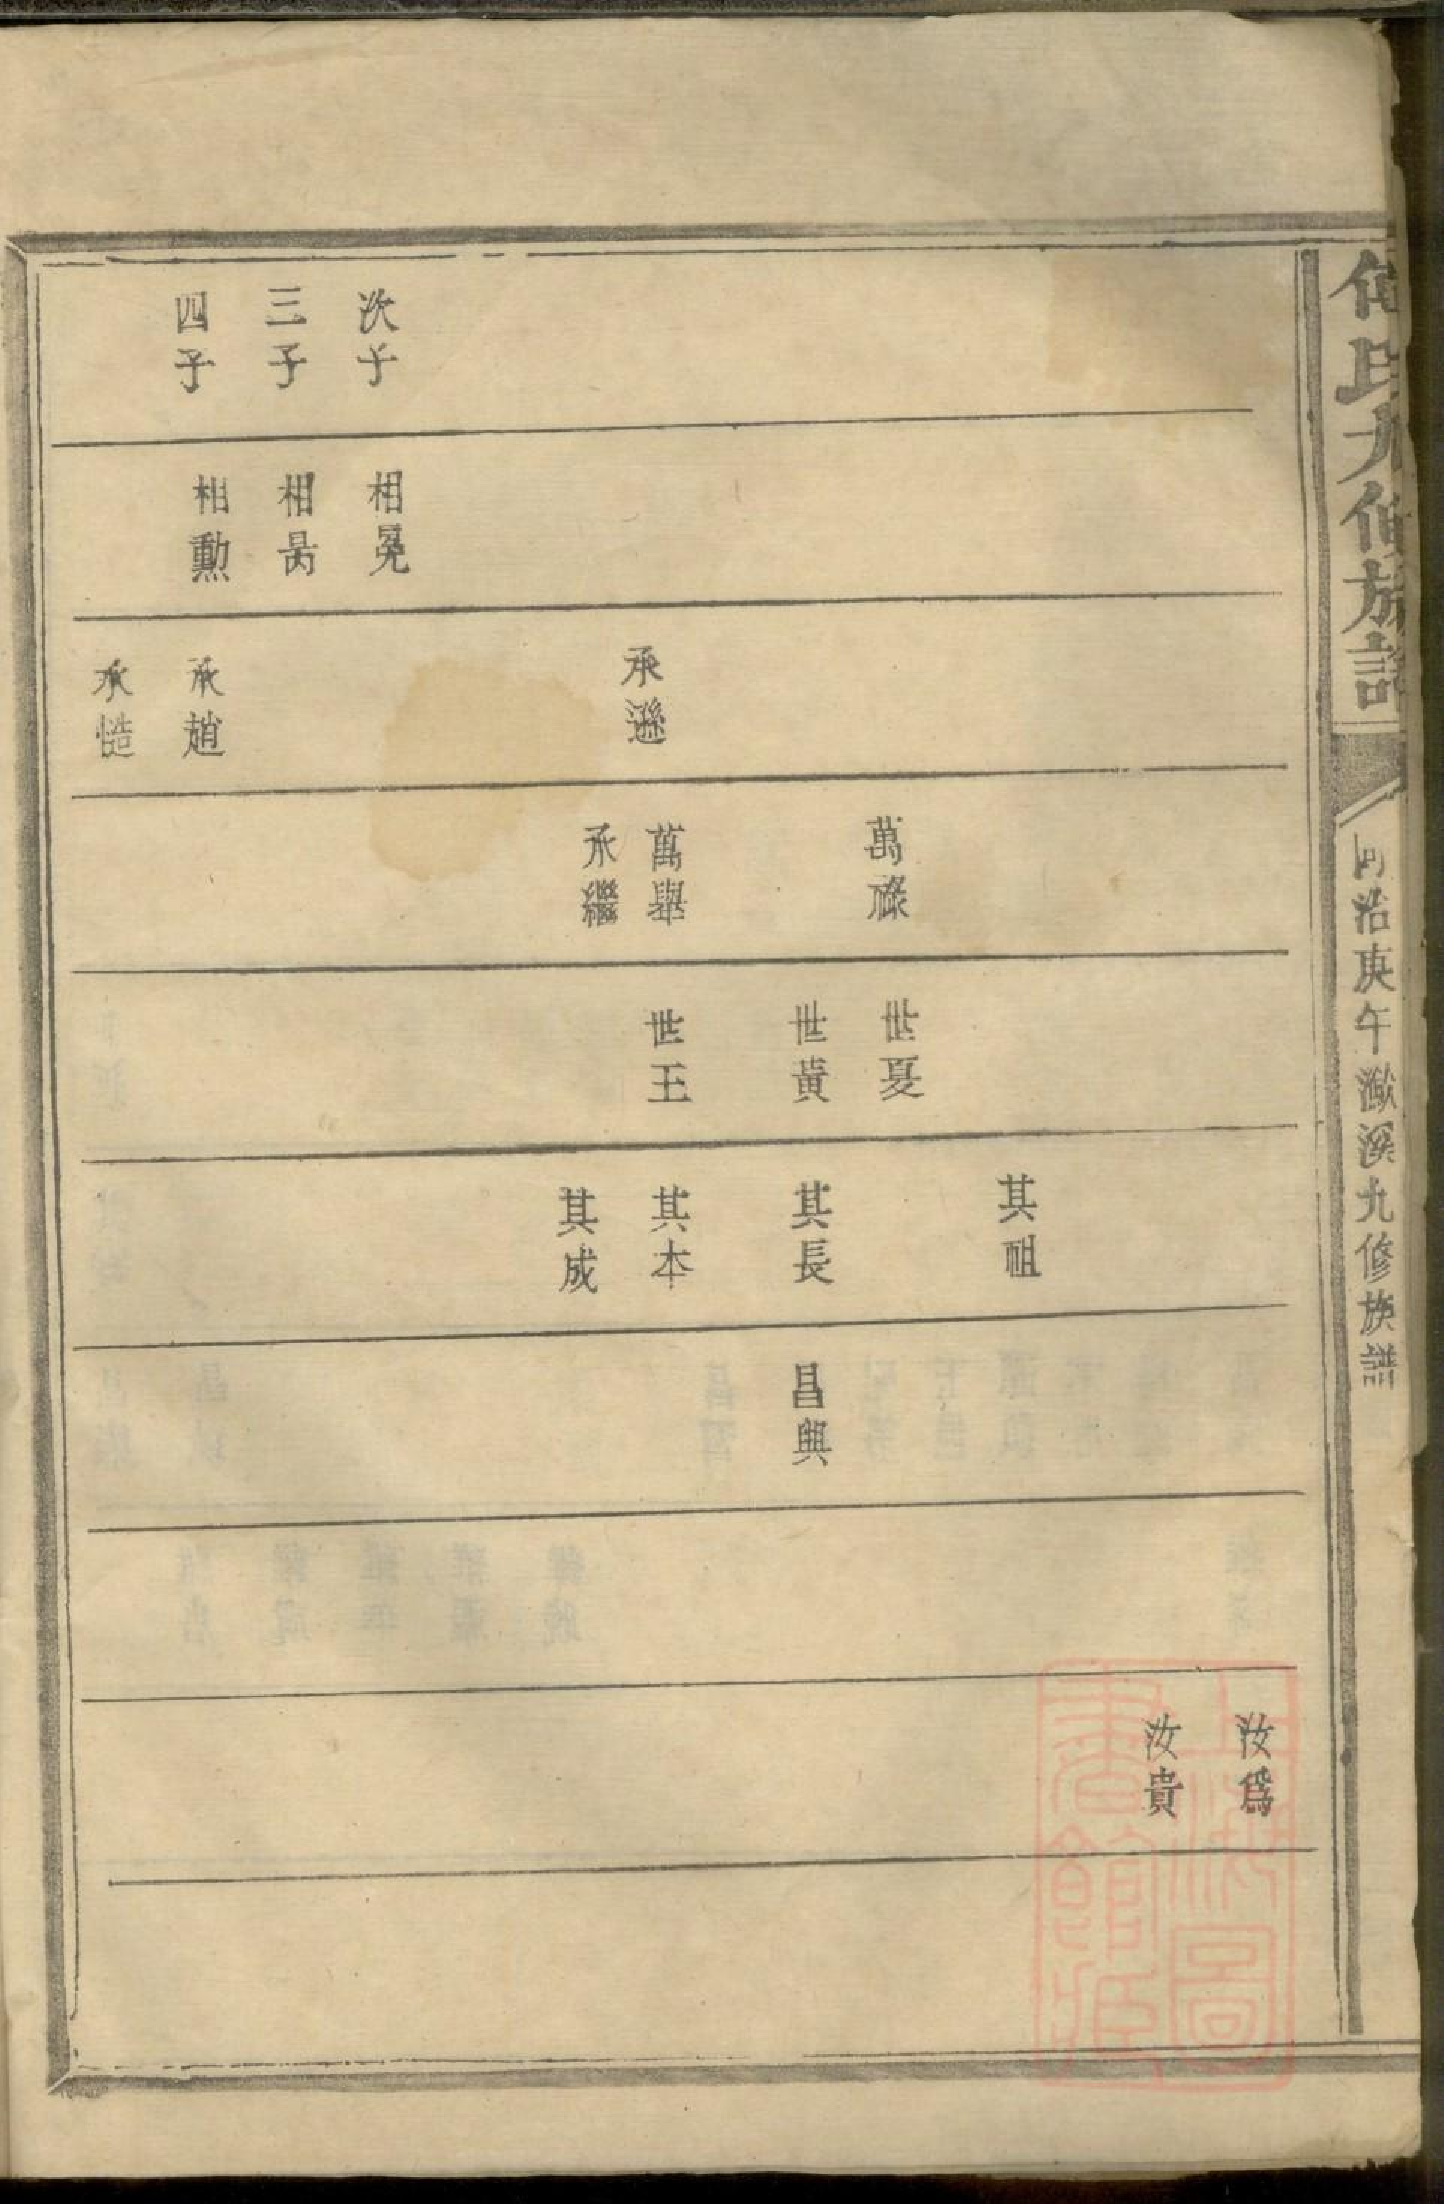 何氏九修族譜
同治庚午濲溪九修族譜
次子
三子
四子
相冕
相勗
相勲
承遜
承趙
承慥
萬祿
萬舉
承繼
世夏
世黃
世王
其祖
其長
其本
其成
昌興
汝為
汝貴
上海圖
書館藏